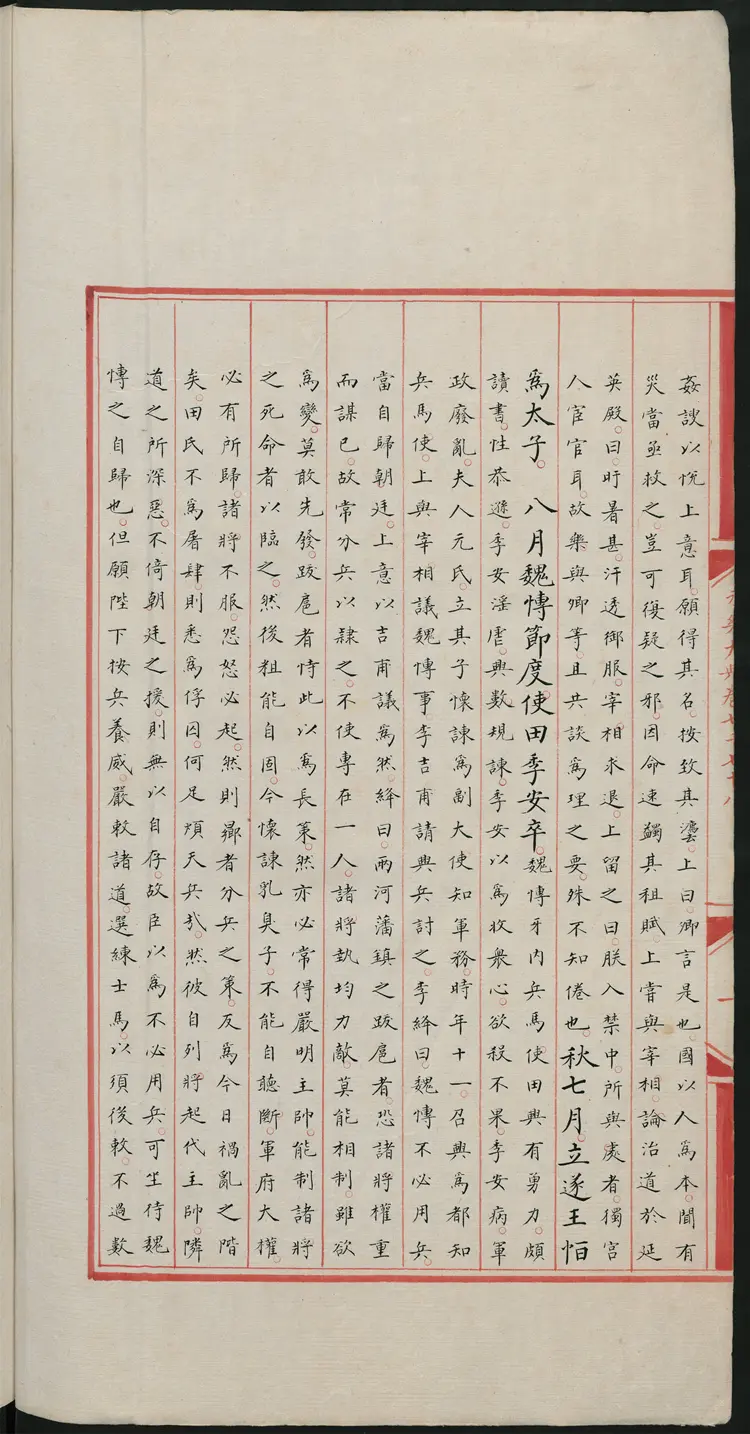 姦諛以悅上意耳願得其名按致其灋上曰卿言是也國以人爲本聞有
災當亟救之豈可復疑之邪因命速蠲其租賦上嘗與宰相論治道於延
英殿曰旰暑甚汗透御服宰相求退上留之曰朕入禁中所與處者獨宮
人宦官耳故樂與卿等且共談爲理之要殊不知倦也秋七月立遂王恒
爲太子八月魏愽節度使田季安卒魏愽牙内兵馬使田興有勇力頗
讀書性恭遜季安淫虐興數規諫季安以爲收衆心欲殺不果季安病軍
政廢亂夫人元氏立其子懷諫爲副大使知軍務時年十一召興爲都知
兵馬使上與宰相議魏愽事李吉甫請興兵討之李絳曰魏愽不必用兵
當自歸朝廷上意以吉甫議爲然絳曰兩河藩鎮之跋扈者恐諸將權重
而謀已故常分兵以隸之不使專在一人諸將埶均力敵莫能相制雖欲
爲變莫敢先發跋扈者恃此以爲長策然亦必常得嚴明主帥能制諸將
之死命者以臨之然後粗能自固今懷諫乳臭子不能自聽斷軍府大權
必有所歸諸將不服怨怒必起然則曏者分兵之策反爲今日禍亂之階
矣田氏不爲屠肆則悉爲俘囚何足煩天兵哉然彼自列將起代主帥隣
道之所深惡不倚朝廷之援則無以自存故臣以爲不必用兵可坐待魏
愽之自歸也但願陛下按兵養威嚴敕諸道選練士馬以須後敕不過數